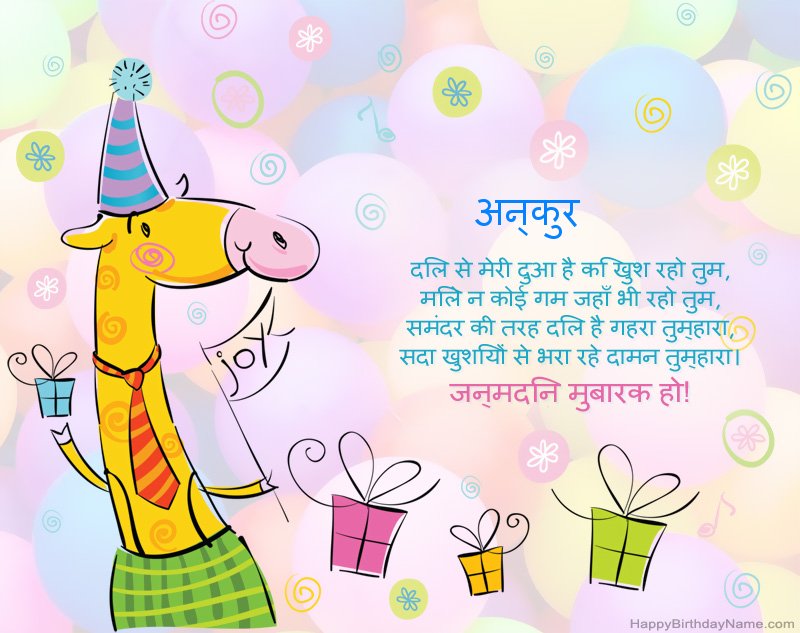 अन्कुर
दिल से मेरी दुआ है कि खुश रहो तुम,
मिले न कोई गम जहाँ भी रहो तुम,
समंदर की तरह दिल है गहरा तुम्हारा,
सदा खुशियों से भरा रहे दामन तुम्हारा।
जन्मदिन मुबारक हो!
joy
HappyBirthdayName.com